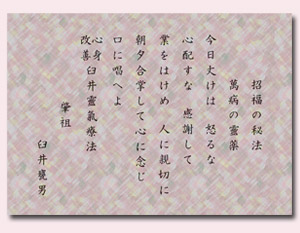 招福の秘法
萬病の靈薬
今日丈けは　怒るな
心配すな　感謝して
業をはげめ　人に親切に
朝夕合掌して心に念じ
口に唱へよ
心身
改善臼井靈氣療法
肇祖
臼井甕男